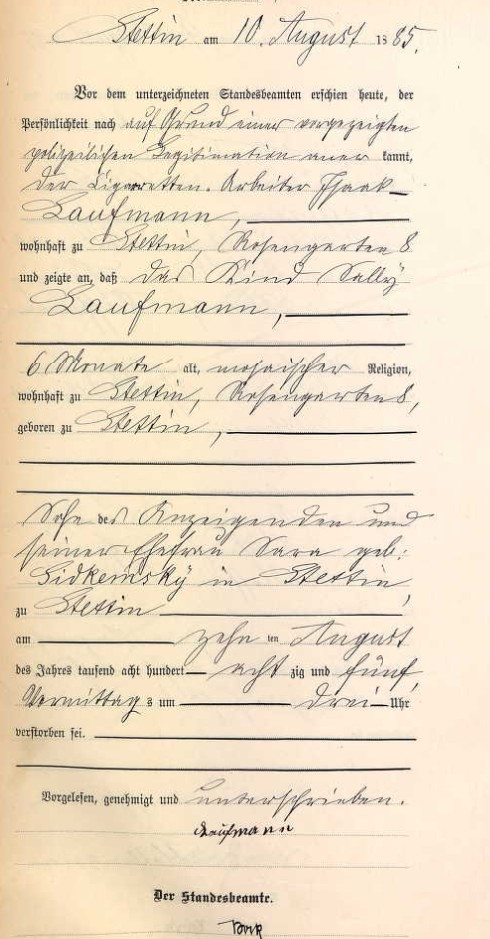 Stettin am 10. August 1885.
Vor dem unterzeichneten Standesbeamten erschien heute, der
Persönlichkeit nach auf Grund einer vorgezeigten
polizeilichen Legitimation anerkannt,
der Cigaretten-Arbeiter Isaak
Kaufmann,
wohnhaft zu Stettin, Rosengarten 8
und zeigte an, daß das Kind Sally
Kaufmann,
6 Monate alt, mosaischer Religion,
wohnhaft zu Stettin, Rosengarten 8,
geboren zu Stettin,
Sohn des Anzeigenden und
seiner Ehefrau Sara geb:
in Stettin,
zu Stettin
am zehn ten August
des Jahres tausend acht hundert acht zig und fünf,
Vormittags um drei Uhr
verstorben sei.
Vorgelesen, genehmigt und unterschrieben.
Kaufmann
Der Standesbeamte.